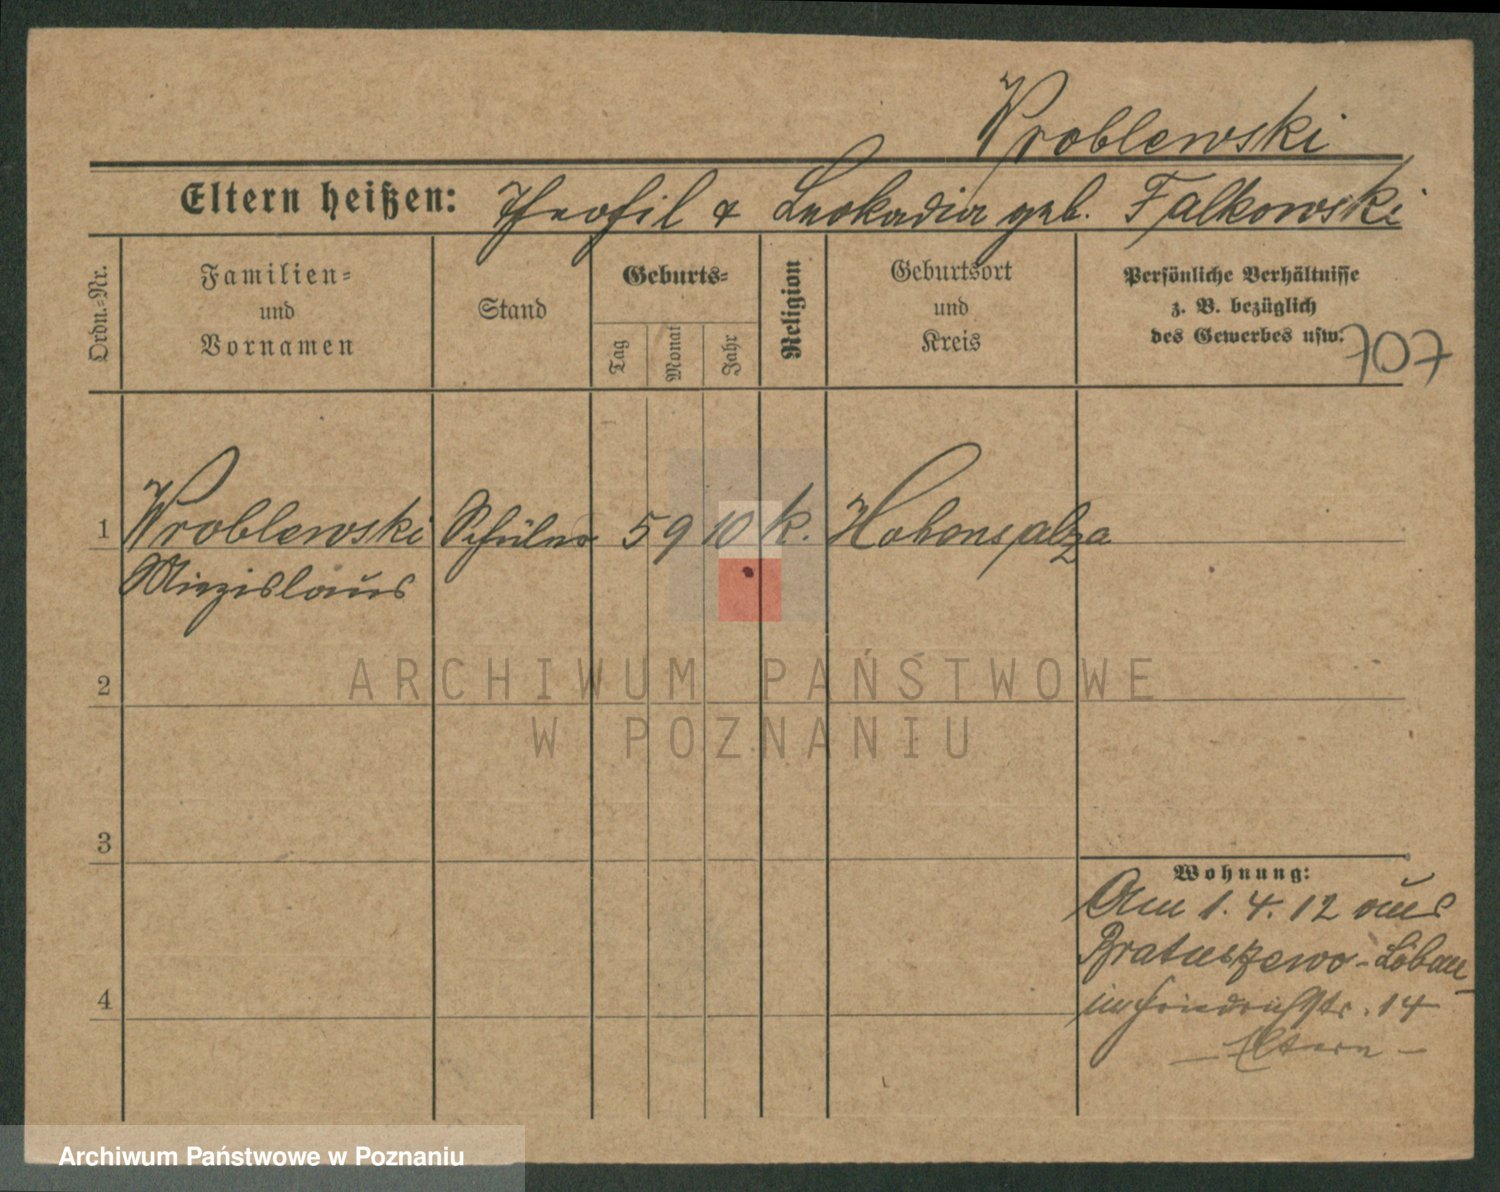 Wroblewski
Eltern heißen: Theofil & Leokadia geb. Falkowski
Ordn.-Nr.
Familien-
und
Vornamen
Stand
Geburts-
Tag
Monat
Jahr
Religion
Geburtsort
und
Kreis
Persönliche Verhältnisse
z. B. bezüglich
des Gewerbes usw.
707
1 Wroblewski Schüler 5 9 10 k. Hohensalza
Miezislaus
2
ARCHIWUM PAŃSTWOWE
W POZNANIU
3
Wohnung:
Am 1. 4. 12 aus
Löbau
4
in Friedrichstr. 14
– Eltern –
Archiwum Państwowe w Poznaniu